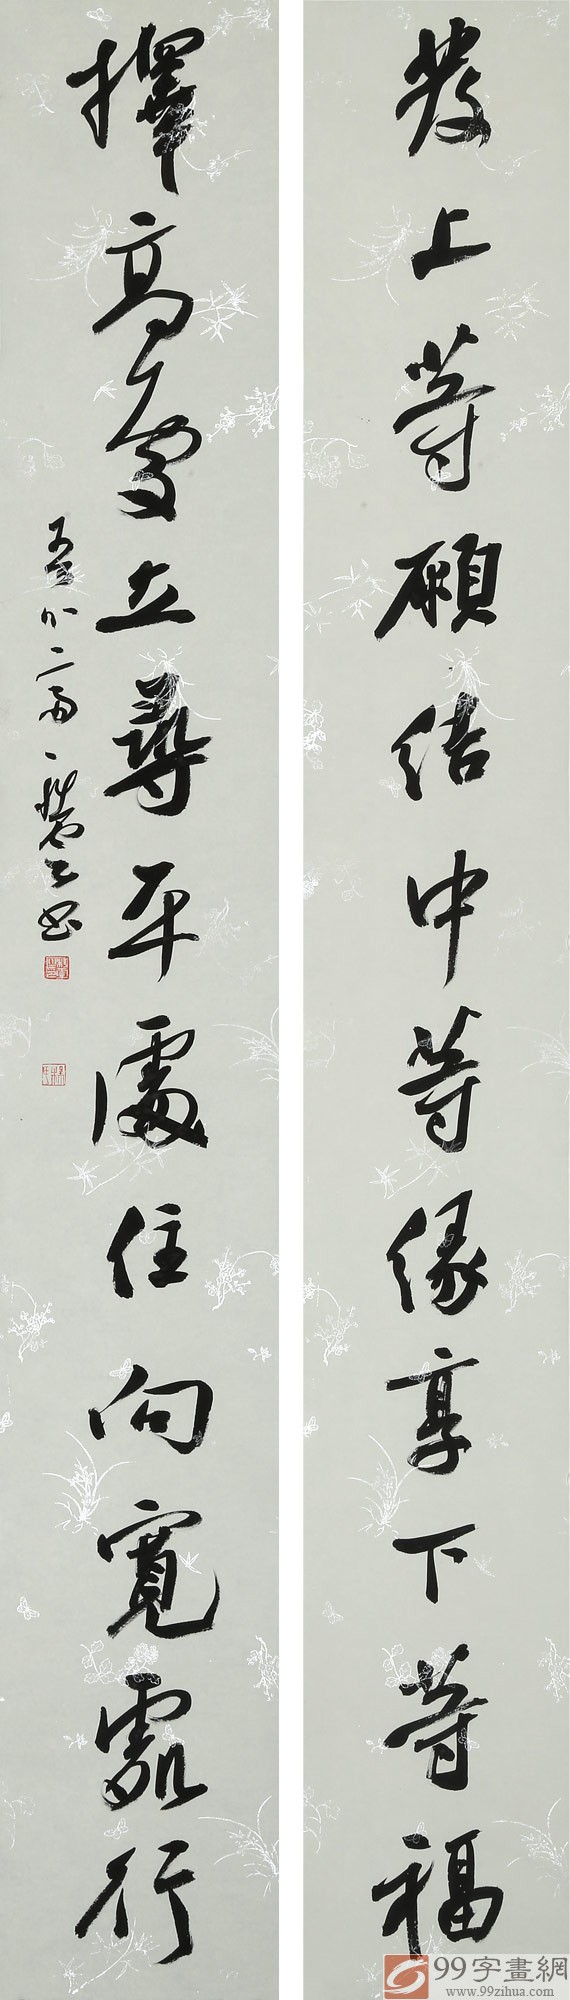 發上等願結中等緣享下等福
擇高處立尋平處住向寬處行
99字畫網
www.99zihua.com